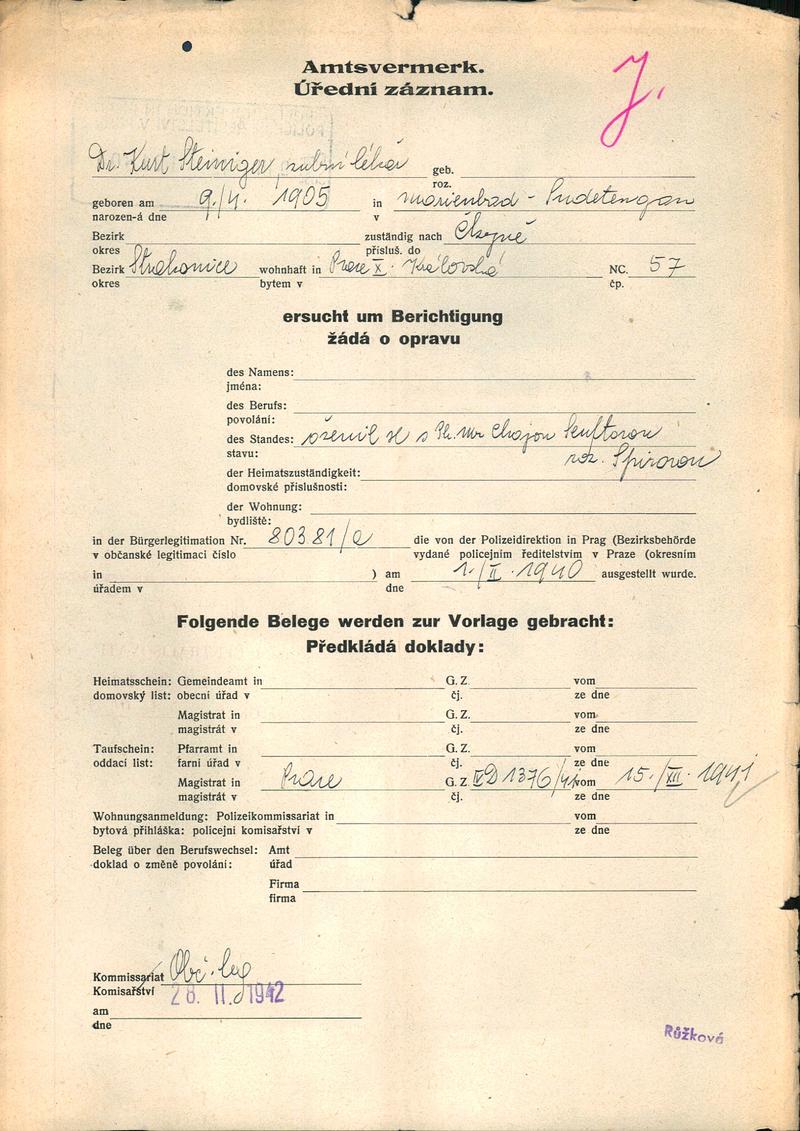 Amtsvermerk.
Úřední záznam.
J.
Dr. Kurt Steiniger, zubní lékař geb.
roz.
geboren am 9./4. 1905 in Marienbad - Sudetengau
narozen-á dne v
Bezirk zuständig nach
okres přísluš. do
Bezirk Strakonice wohnhaft in Praze X. Královská NC. 57
okres bytem v čp.
ersucht um Berichtigung
žádá o opravu
des Namens:
jména:
des Berufs:
povolání:
des Standes: oženil se s Ph. Mr Chajou Senftovou
stavu: roz. Spirovou
der Heimatszuständigkeit:
domovské příslušnosti:
der Wohnung:
bydliště:
in der Bürgerlegitimation Nr. 80381/a die von der Polizeidirektion in Prag (Bezirksbehörde
v občanské legitimaci číslo vydané policejním ředitelstvím v Praze (okresním
in ) am 1./II. 1940 ausgestellt wurde.
úřadem v dne
Folgende Belege werden zur Vorlage gebracht:
Předkládá doklady:
Heimatsschein: Gemeindeamt in G. Z. vom
domovský list: obecní úřad v čj. ze dne
Magistrat in G. Z. vom
magistrát v čj. ze dne
Taufschein: Pfarramt in G. Z. vom
oddací list: farní úřad v čj. ze dne
Magistrat in Praze G. Z. IVD 1376/41 vom 15./XII. 1941
magistrát v čj. ze dne
Wohnungsanmeldung: Polizeikommissariat in vom
bytová přihláška: policejní komisařství v ze dne
Beleg über den Berufswechsel: Amt
doklad o změně povolání: úřad
Firma
firma
Kommissariat Obč. leg
Komisařství 28. II. 1942
am
dne
Růžková